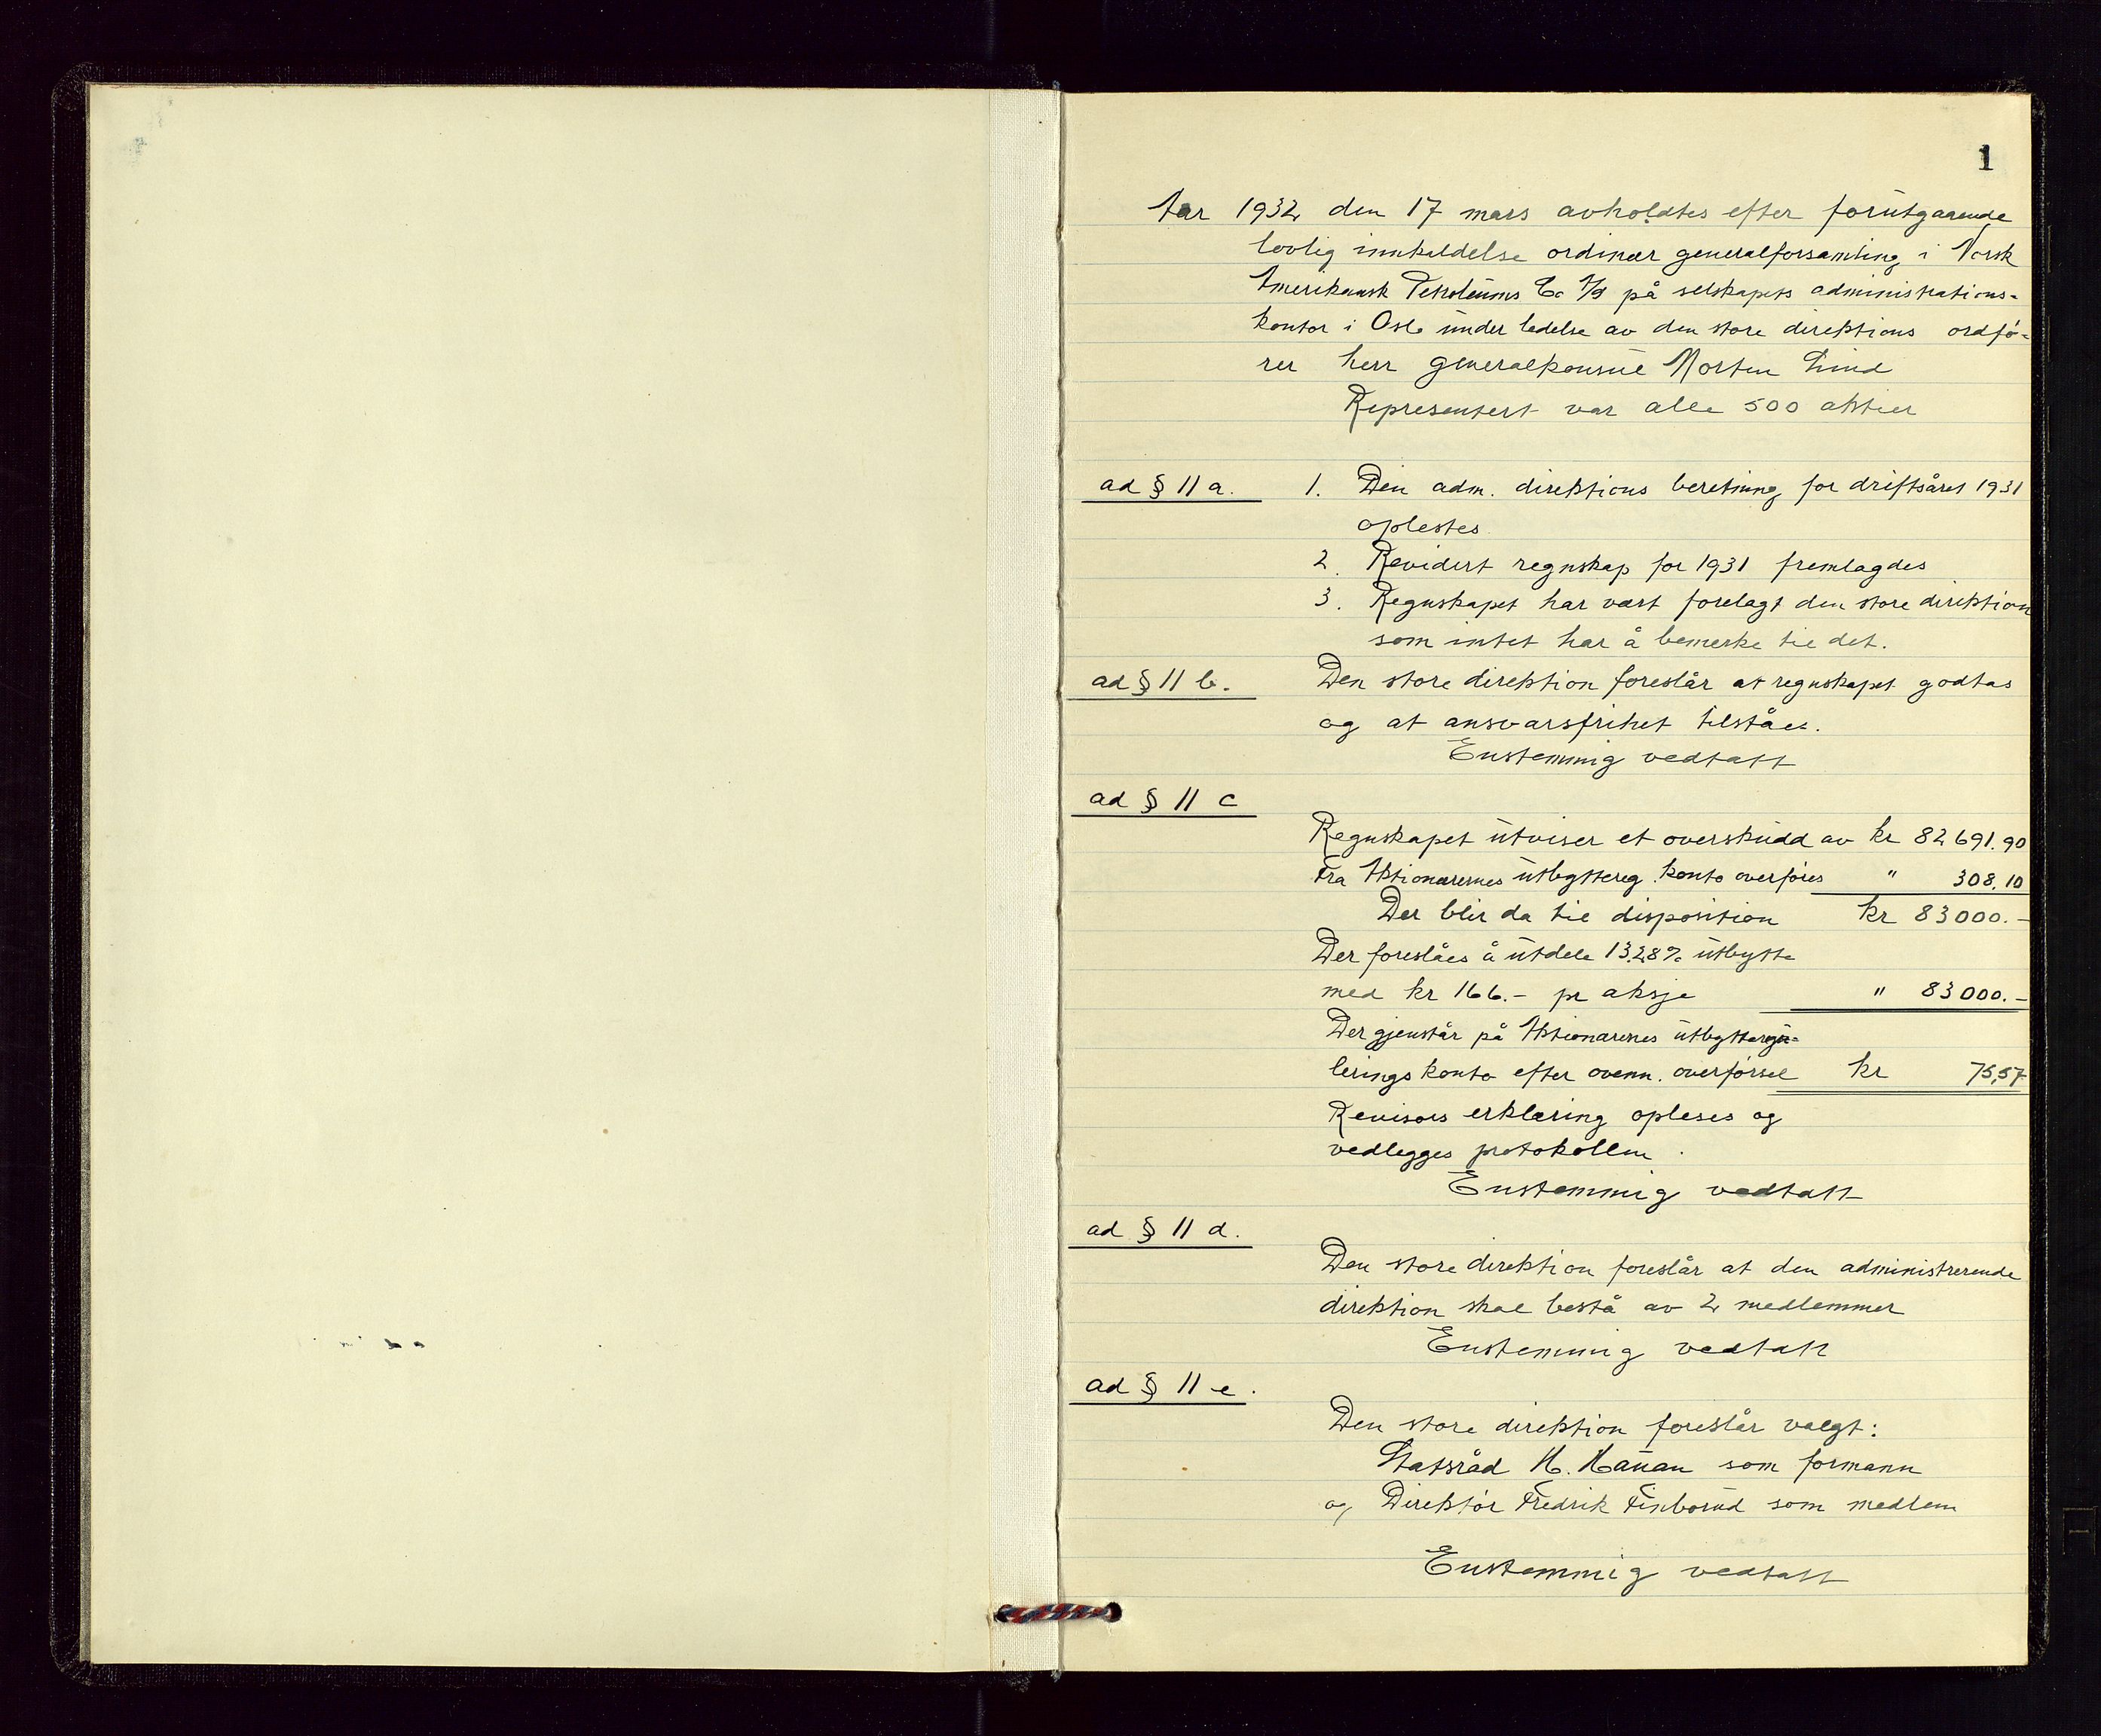 1
Aar 1932 den 17 mars avholdtes efter forutgaaende
lovlig innkaldelse ordinær generalforsamling i Norsk
Amerikansk Petroleums Co A/S på selskapets administrations-
kontor i Oslo under ledelse av den store direktions ordfö-
rer herr generalkonsul Morten Lind
Representert var alle 500 aktier
ad § 11 a. 1. Den adm. direktions beretning for driftsåret 1931
oplestes
2. Revidert regnskap for 1931 fremlagdes
3. Regnskapet har vært forelagt den store direktion
som intet har å bemerke til det.
ad § 11 b. Den store direktion foreslår at regnskapet godtas
og at ansvarsfrihet tilståes.
Enstemmig vedtatt
ad § 11 c
Regnskapet utviser et overskudd av kr 82 691.90
Fra Aktionærernes utbyttereg. konto overføres " 308.10
Der blir da til disposition kr 83 000.-
Der foreslåes å utdele 13.28% utbytte
med kr 166.- pr aksje " 83 000.-
Der gjenstår på Aktionærenes utbytteregu-
lerings konto efter ovenn. overførsel kr 75,57
Revisors erklæring opleses og
vedlegges protokollen.
Enstemmig vedtatt
ad § 11 d.
Den store direktion foreslår at den administrerende
direktion skal bestå av 2 medlemmer
Enstemmig vedtatt
ad § 11 e.
Den store direktion foreslår valgt:
Statsråd H. Hauan som formann
og Direktör Fredrik Finborud som medlem
Enstemmig vedtatt